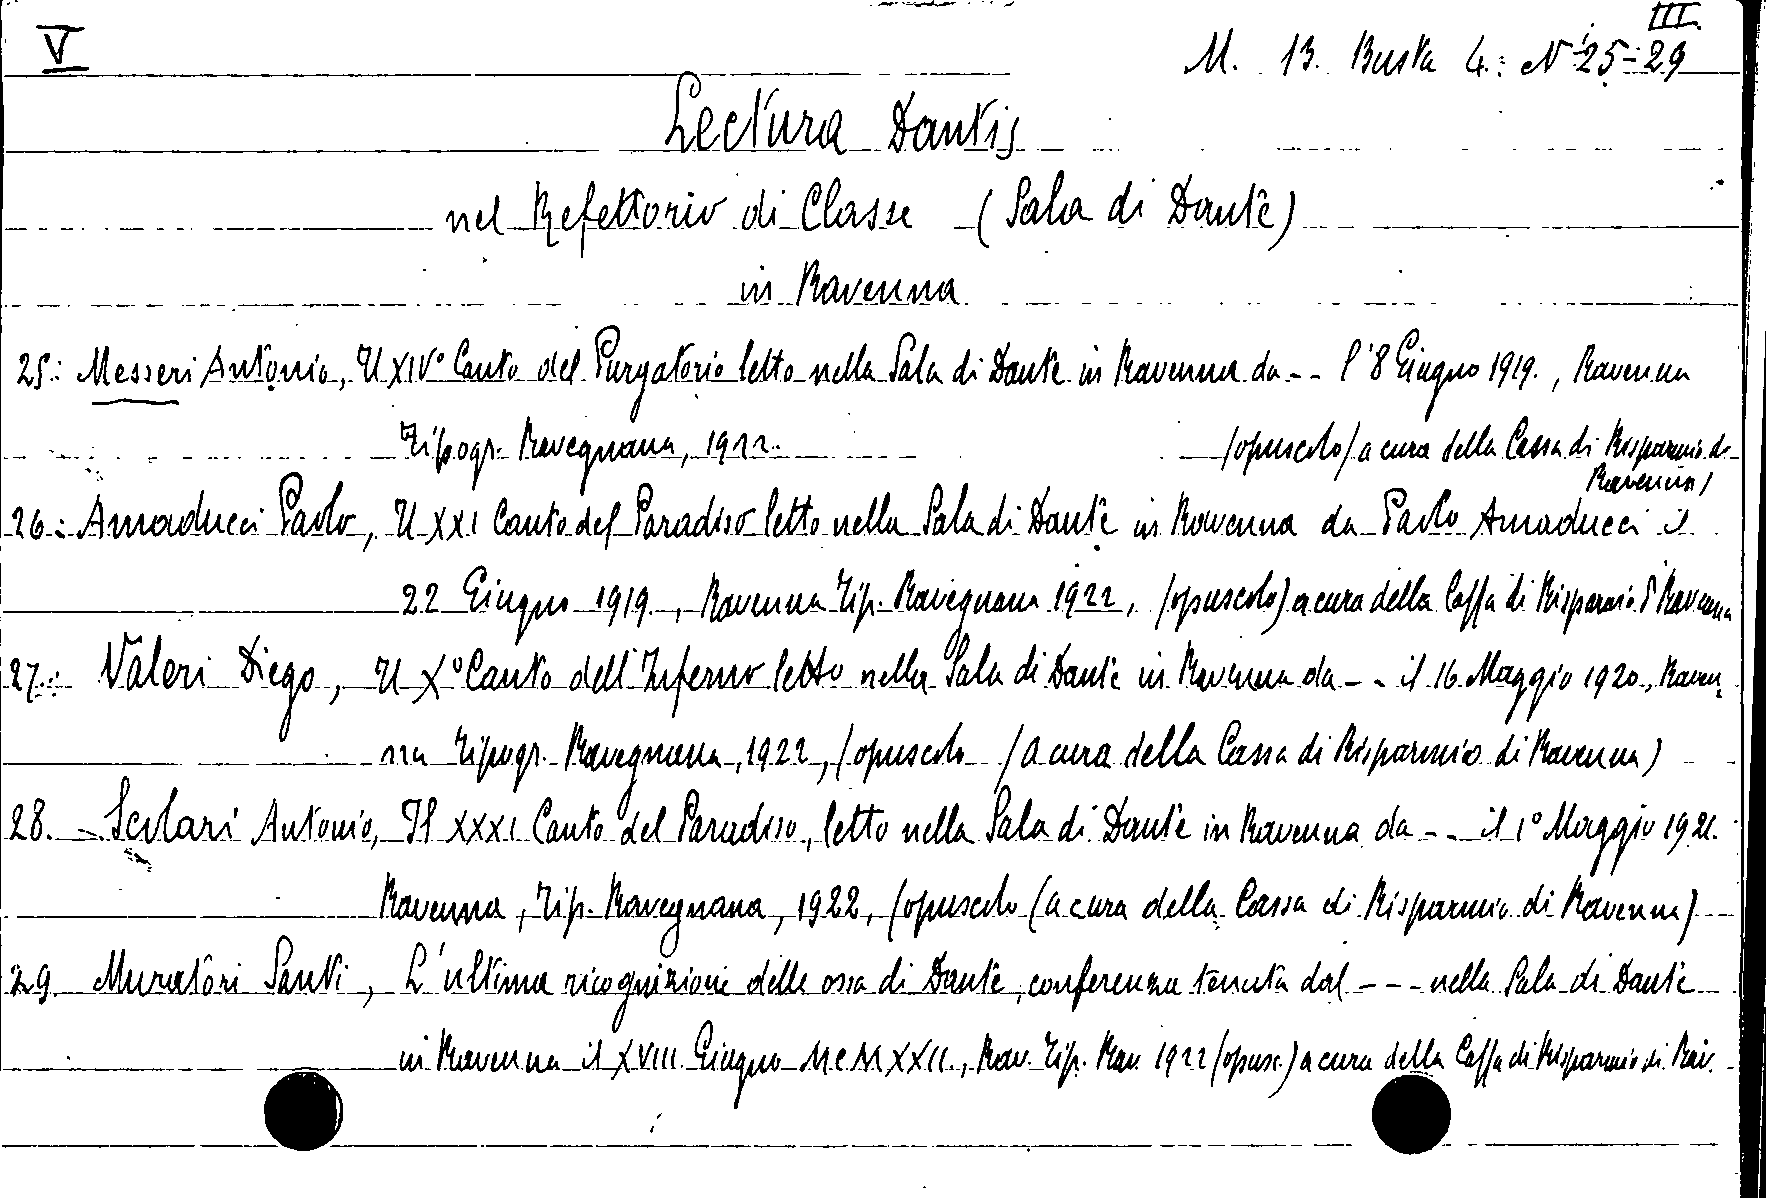 V
III.
M. 13. Busta 4: Nⁱ 25-29
Lectura Dantis
nel Refettorio di Classe (Sala di Dante)
in Ravenna
25: Messeri Antonio, Il XIV° Canto del Purgatorio letto nella Sala di Dante in Ravenna da -- l'8 Giugno 1919., Ravenna
Tipogr. Ravegnana, 1922. (opuscolo) a cura della Cassa di Risparmio di
Ravenna)
26: Amaducci Paolo, Il XXI Canto del Paradiso letto nella Sala di Dante in Ravenna da Paolo Amaducci il
22 Giugno 1919., Ravenna Tip. Ravegnana 1922, (opuscolo) a cura della Cassa di Risparmio d Ravenna
27: Valeri Diego, Il X° Canto dell'Inferno letto nella Sala di Dante in Ravenna da -- il 16 Maggio 1920, Raven=
na Tipogr. Ravegnana, 1922, (opuscolo (a cura della Cassa di Risparmio di Ravenna)
28. - Scolari Antonio, Il XXXI Canto del Paradiso, letto nella Sala di Dante in Ravenna da -- il 1° Maggio 1921.
Ravenna, Tip. Ravegnana, 1922, (opuscolo (a cura della Cassa di Risparmio di Ravenna)
29. Muratori Santi, L'ultima ricognizione delle ossa di Dante, conferenza tenuta dal --- nella Sala di Dante
in Ravenna il XVIII Giugno MCMXXII., Rav. Tip. Rav. 1922 (opusc.) a cura della Cassa di Risparmio di Rav.